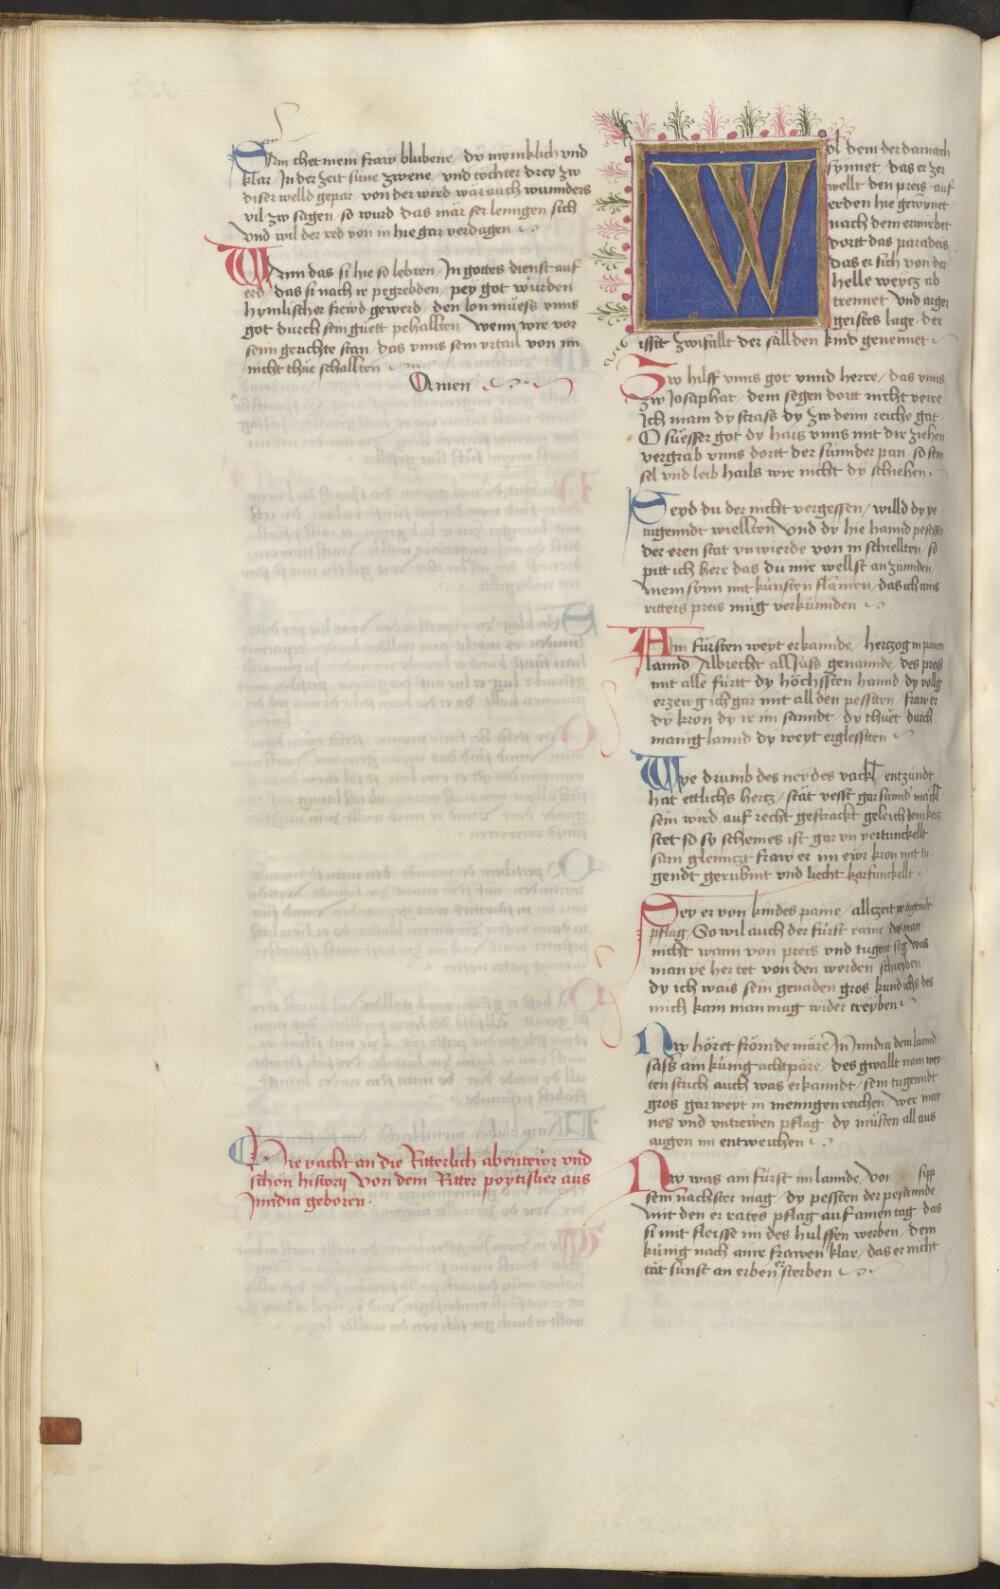 Sam thet mein fraw blubene / dy mynklich vnd
klar / In der zeit süne zwene / vnd tochter drey zw
diser welld gepar / von der wird wär auch wunnders
vil zw sagen / so wurd das mär ser lenngen sich
vnd wil der red von in hie gar verdagen
Wann das si hie so lebten / In gottes dienst auf
erd / das si nach ir pegrebden / pey got wurden
hymlischer frewd gewerd / den lon müess vnns
got durch sein güett pehallten / wenn wir vor
seim gerichte stan / das vnns sein vrtail von im
nicht thüe schallten
Amen
Hie vacht an die Ritterlich abentewr vnd
schön history von dem Ritter poytislier aus
Inndia geboren
Wol dem der darnach
synnet / das er zer
wellt den preis / auf
erden hie gewynet /
nach dem erwirbet
dortt das paradeis
das er sich von der
helle weytz ab
trennet vnd arger
geistes lage / der
issit zwifallt der sällden kind genennet
Zw hilff vnns got vnnd herre / das vnns
zw Josaphat / dem segen dortt nicht verre
Ich main dy strass dy zw denn reiche gat
O süesser got dy hais vnns mit dir ziehen
vergrab vnns dortt der sünnder pan / so sein
sel vnd leib hails wir nicht dy schiehen
Seyd du der nicht vergessen / willd dy ye
tugenndt wiellten vnd dy hie hannd pesessen
der eren stat vnwierde von in schiellten / so
pitt ich herr das du mir wellst anzünnden
mein synn mit künsten flamen / das ich ains
ritters preis müg verkünnden
Aim fürsten weyt erkannde / hertzog in pairen
lannd Albrecht allsuss genannde / des preis
mit alle fürtt dy höchssten hannd / dy volg
erzewg ich gar mit all den pessten / fraw er
dy kron dy ir im sanndt / dy thuet durch
manig lannd dy weyt erglessten
Wye drumb des neydes vackl / entzundt
hat ettlichs hertz / stät vesst gar sunnd mackl
sein wird auf recht gestrackt geleich dem kertz
stet so sy scheines ist gar vnvertunckellt
sam glenntzt fraw er im ewr kron mit tu
gendt gerubint vnd liecht karfunckellt
Sey er von kindes paine / allczeit ye tugendt
pflag / So wil auch der fürst raine / das man
nicht wann von preis vnd tugent sag / was
man ye her tet von den werden schreyben
dy ich wais sein genaden gros kund ichs des
mich kain man mag wider treyben
Nw höret frömde märe / In Inndia dem lannd
sass ain künig achtpäre / des gwallt nam wey
ten strich auch was erkanndt / sein tugenndt
gros gar weyt in menngen reichen / wer mai
nes vnd vntrewen pflag / dy müsten all aus
augen im entweichen
Nw was ain fürst im lannde / vor sipp
sein nachster mag / dy pessten der pekannde
mit den er rates pflag auf ainen tag / das
si mit fleisse im des hulffen werben / dem
künig nach ainr frawen klar / das er nicht
tät sunst an erben ersterben